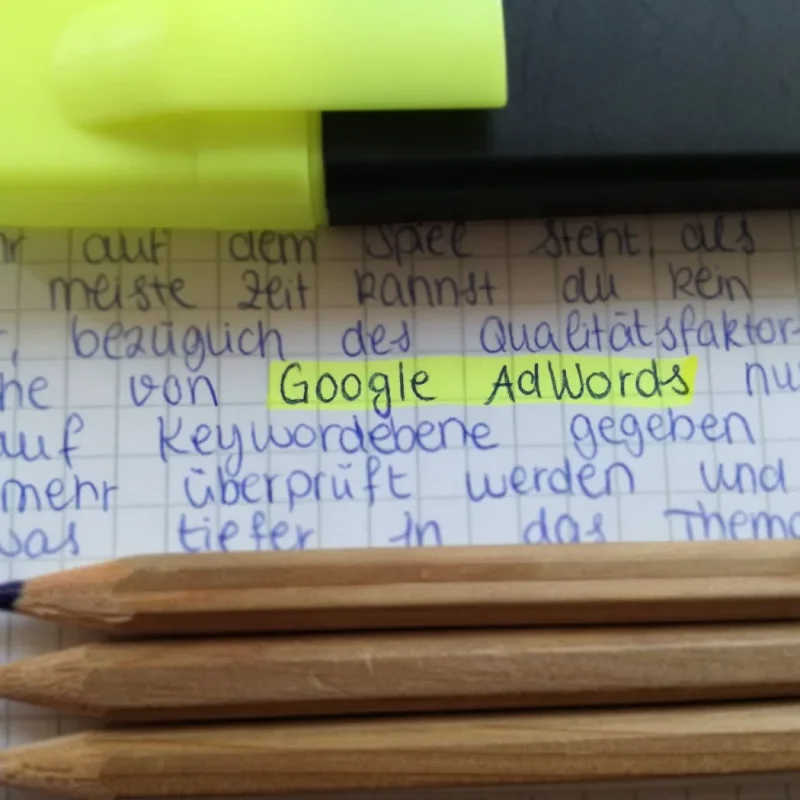 auf dem Spiel steht, als
meiste Zeit kannst du kein
bezüglich des Qualitätsfaktor-
von Google AdWords nu
auf Keywordebene gegeben
mehr überprüft werden und
was tiefer in das Thema